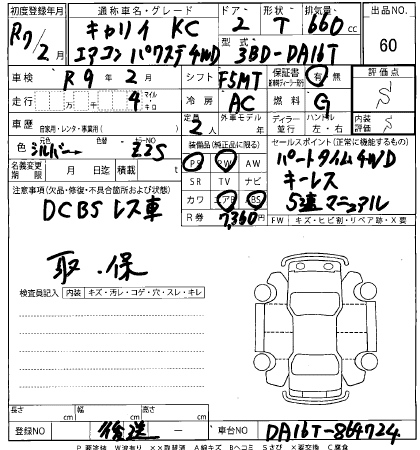 初度登録年月 通称車名・グレード ドア 形状 排気量 出品NO
R7/2月 キャリイ KC 2 T 660 cc 60
エアコン パワステ 4WD 型式 3BD-DA16T
車検 R9年2月 シフト F5MT 保証書 有 無 評価点
走行 万 千 4 マイル キロ 冷房 AC 燃料 G
車歴 自家用・レンタ・事業用( ) 定員 2人 外車モデル 年 ディーラー 並行 ハンドル 左・右
色 元色 シルバー 色替 カラーNO Z2S 装備品(純正品に限る) セールスポイント(正常に機能するもの)
名義変更期限 月 日迄 積載 t PS PW AW パートタイム4WD
注意事項(欠品・修復・不具合箇所および状態) SR TV ナビ キーレス
DCBSレス車 カワ エアB ABS 5速マニュアル
R券 7,360円 FW キズ・ヒビ割・リペア跡・X要
取・保
検査員記入 内装 キズ・汚レ・コゲ・穴・スレ・キレ
長さ cm 幅 cm 高さ cm
登録NO 後送 ー 車台NO DA16T-864724
P 要塗装 W波有り ××取替済 A線キズ Bヘコミ Sさび ×要交換 C腐食